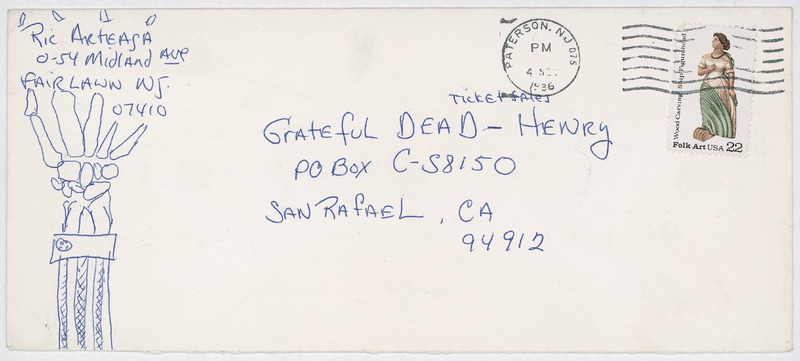 Ric Arteaga
0-54 Midland Ave
FAIRLAWN NJ.
07410
PATERSON, NJ 075
PM
4 NOV
1986
Wood Carving: Ship Figurehead
Folk Art USA 22
TICKET SALES
GRATEFUL DEAD - HENRY
PO BOX C-S8150
SAN RAFAEL, CA
94912